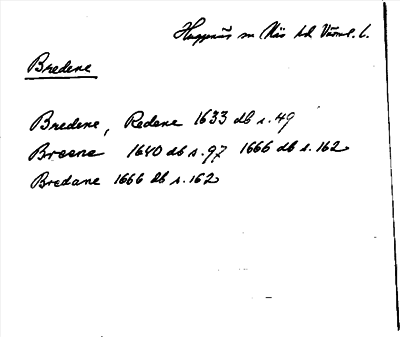 Huggenäs sn Näs hd Värml. l.
Bredene
Bredene, Redene 1633 db s. 49
Breene 1640 db s. 97 1666 db s. 162
Bredane 1666 db s. 162